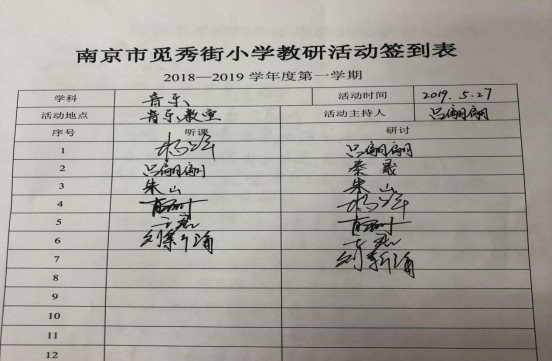 南京市觅秀街小学教研活动签到表
2018—2019 学年度第一学期
学科 音乐 活动时间 2019. 5.27
活动地点 音乐教室 活动主持人 吕翩翩
序号 听课 研讨
1 吕翩翩
2 吕翩翩 秦晟
3 朱山 朱山
4
5
6
7
8
9
10
11
12